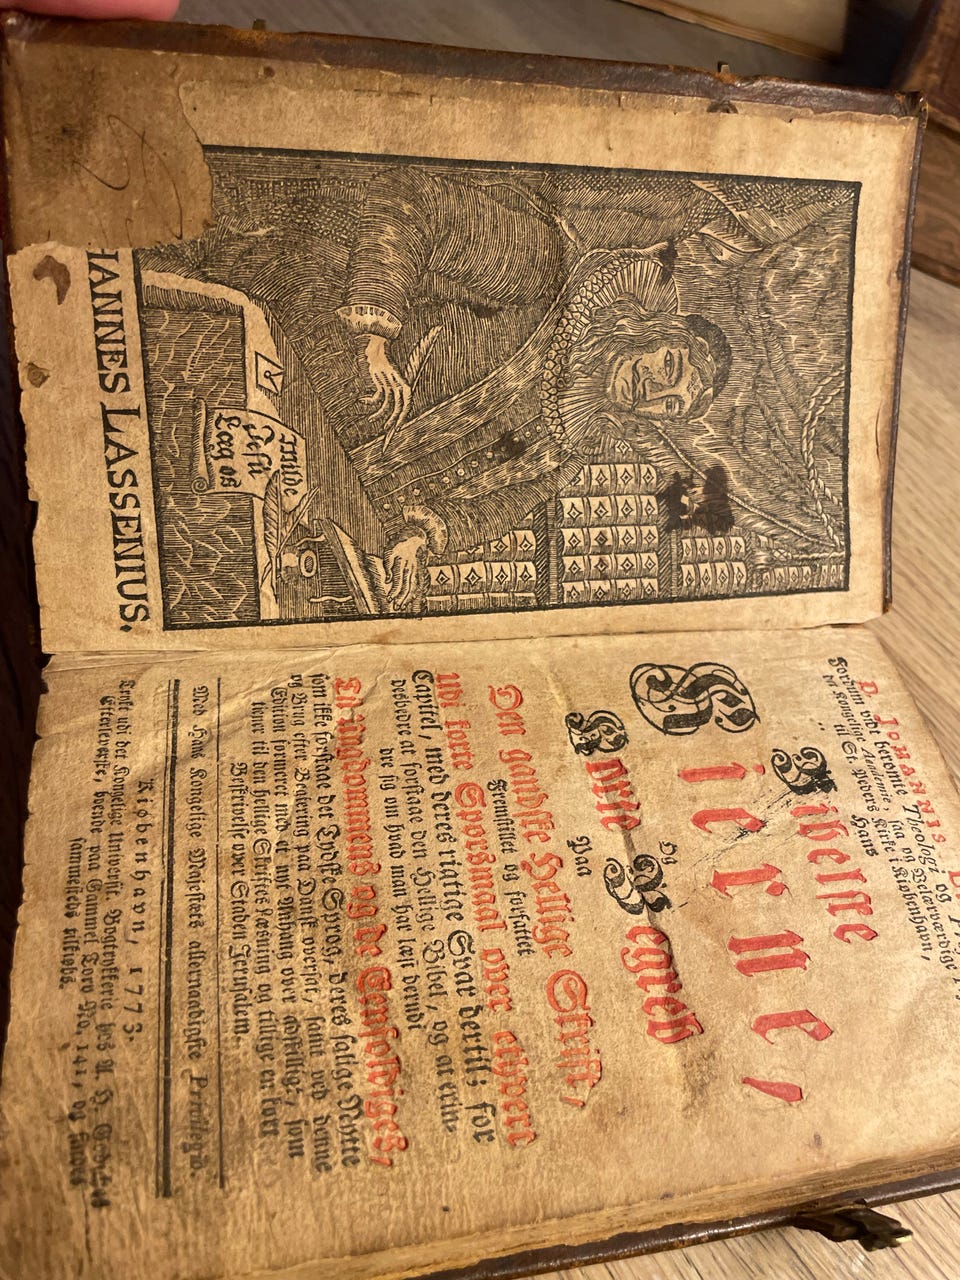 HANNES LASSENIUS.
milde
Jesu
Læg os
D. IOHANNIS
Fordum vidt berømte Theologi og
det Kongelige Academie, saa og Velærværdige
til St. Peders Kirke i Kiøbenhavn,
Hans
Bibelske
Kierne,
Og
Korte Begreb
Paa
Den gandske Hellige Skrift,
Fremstillet og forfattet
udi korte Spørsmaal over ethvert
Capitel, med deres rigtige Svar dertil; for
desbedre at forstaae den Hellige Bibel, og at erin-
dre sig om hvad man har læst derudi
Til Ungdommens og de Eenfoldiges,
som ikke forstaae det Tydske Sprog, deres salige Nytte
og Brug efter Begiering paa Dansk oversat, samt ved denne
Edition formeret med et nyt Anhang over adskilligt, som
tiener til den hellige Skriftes Læsning og tillige en kort
Beskrivelse over Staden Jerusalem.
Med Hans Kongelige Majestæts allernaadigste Privilegio.
Kiøbenhavn, 1773.
Trykt udi det Kongelige Universit. Bogtrykkerie hos A. H.
Efterleverske, boende paa Gammel Torv No. 141, og findes
sammesteds tilkiøbs.